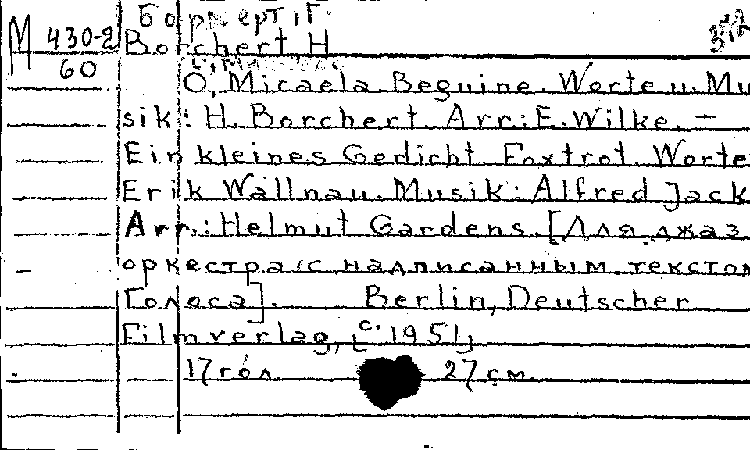 Борхерт, Г.
М 430-2 Borchert H
60
O, Micaela Beguine. Worte u. Mu
sik: H. Borchert Arr.: E. Wilke. —
Ein kleines Gedicht Foxtrot Worte
Erik Wallnau. Musik: Alfred Jack
Arr.: Helmut Gardens. [Для джаз
оркестра с надписанным текстом
Голоса]. Berlin, Deutscher
Filmverlag, [c. 1951]
17 гол. 27 см